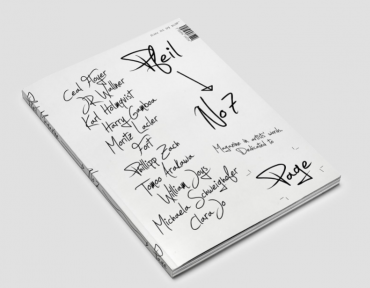 Pfeil
No 7
Ceal Floyer
JD Walker
Karl Holmqvist
Harry Gamboa
Moritz Lacler
Fort
Philipp Zach
Tomoo Arakawa
William Jays
Michaela Schweighofer
Clara Jo
Magazine in artists' words
Dedicated to
Page